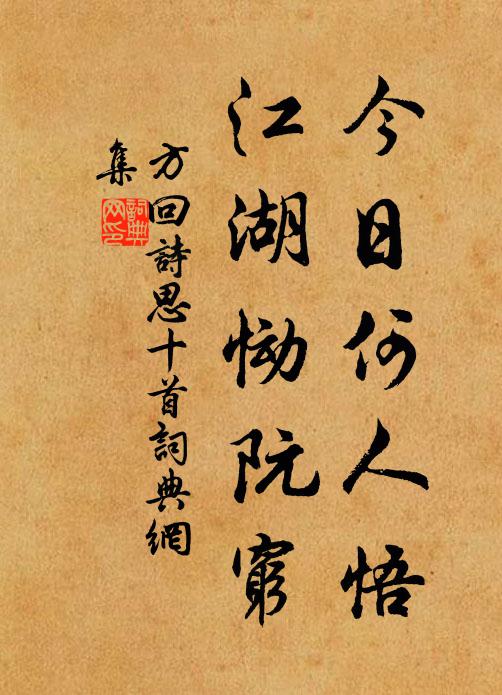 今日何人悟
江湖恸阮窮
方回詩思十首詞典網
集
詞典
网印